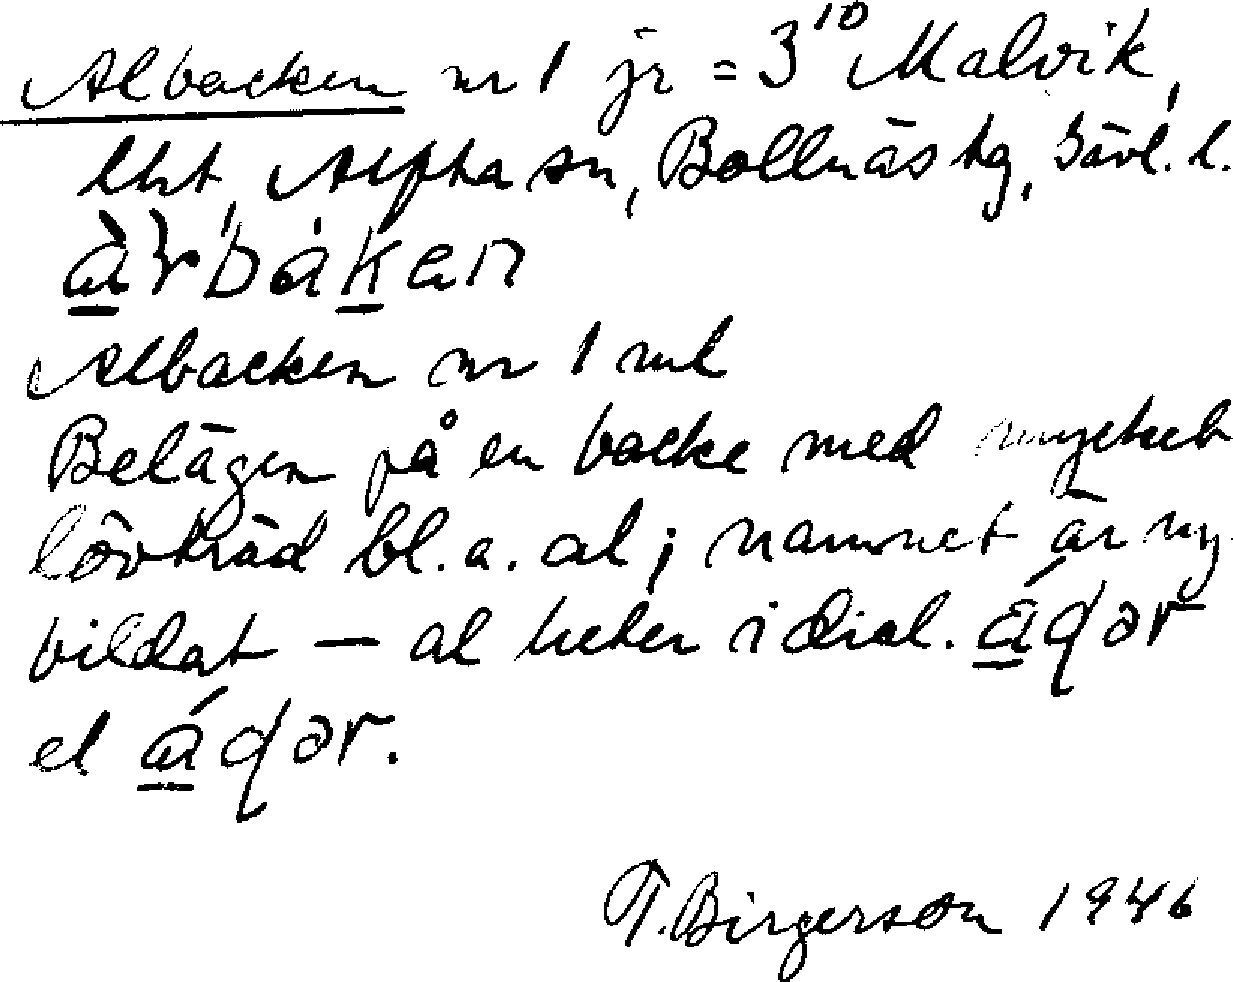 Albacken nr 1 jr = 3¹⁰ Malvik,
lht, Alfta sn, Bollnäs tg, Gävl. l.
Albacken nr 1 ml
Belägen på en backe med mycket
lövträd bl. a. al; namnet är ny-
bildat — al heter i dial. áqər
el áqər.
T. Birgerson 1946